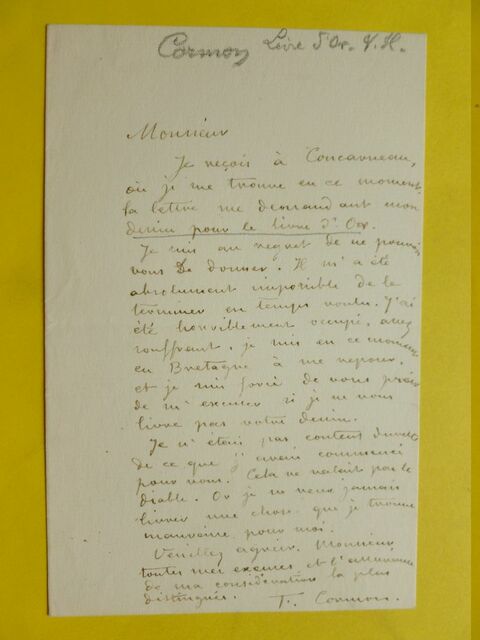 Cormon Livre d'Or. V. H.
Monsieur
Je reçois à Concarneau,
où je me trouve en ce moment,
la lettre me demandant mon
dessin pour le livre d'Or.
Je suis au regret de ne pouvoir
vous le donner. Il m'a été
absolument impossible de le
terminer en temps voulu. J'ai
été horriblement occupé, assez
souffrant, je suis en ce moment
en Bretagne à me reposer.
et je suis forcé de vous prier
de m'excuser si je ne vous
livre pas votre dessin.
Je n'étais pas content du reste
de ce que j'avais commencé
pour vous. Cela ne valait pas le
diable. Or je ne veux jamais
livrer une chose que je trouve
mauvaise pour moi.
Veuillez agréer, Monsieur
toutes mes excuses et l'assurance
de ma considération la plus
distinguée. F. Cormon.